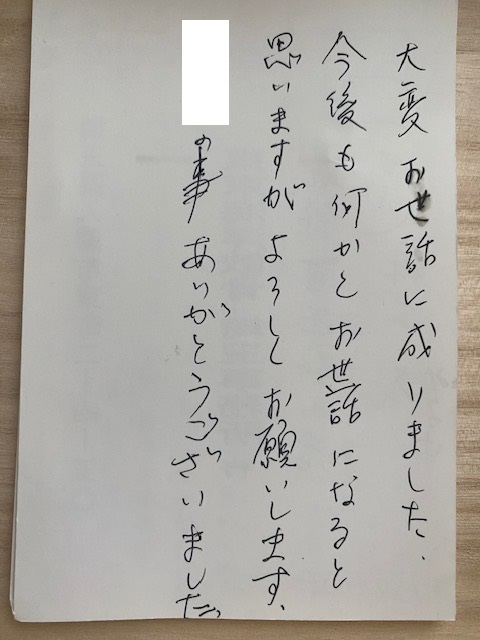 大変お世話に成りました、
今後も何かとお世話になると
思いますがよろしくお願いします、
の事ありがとうございました。